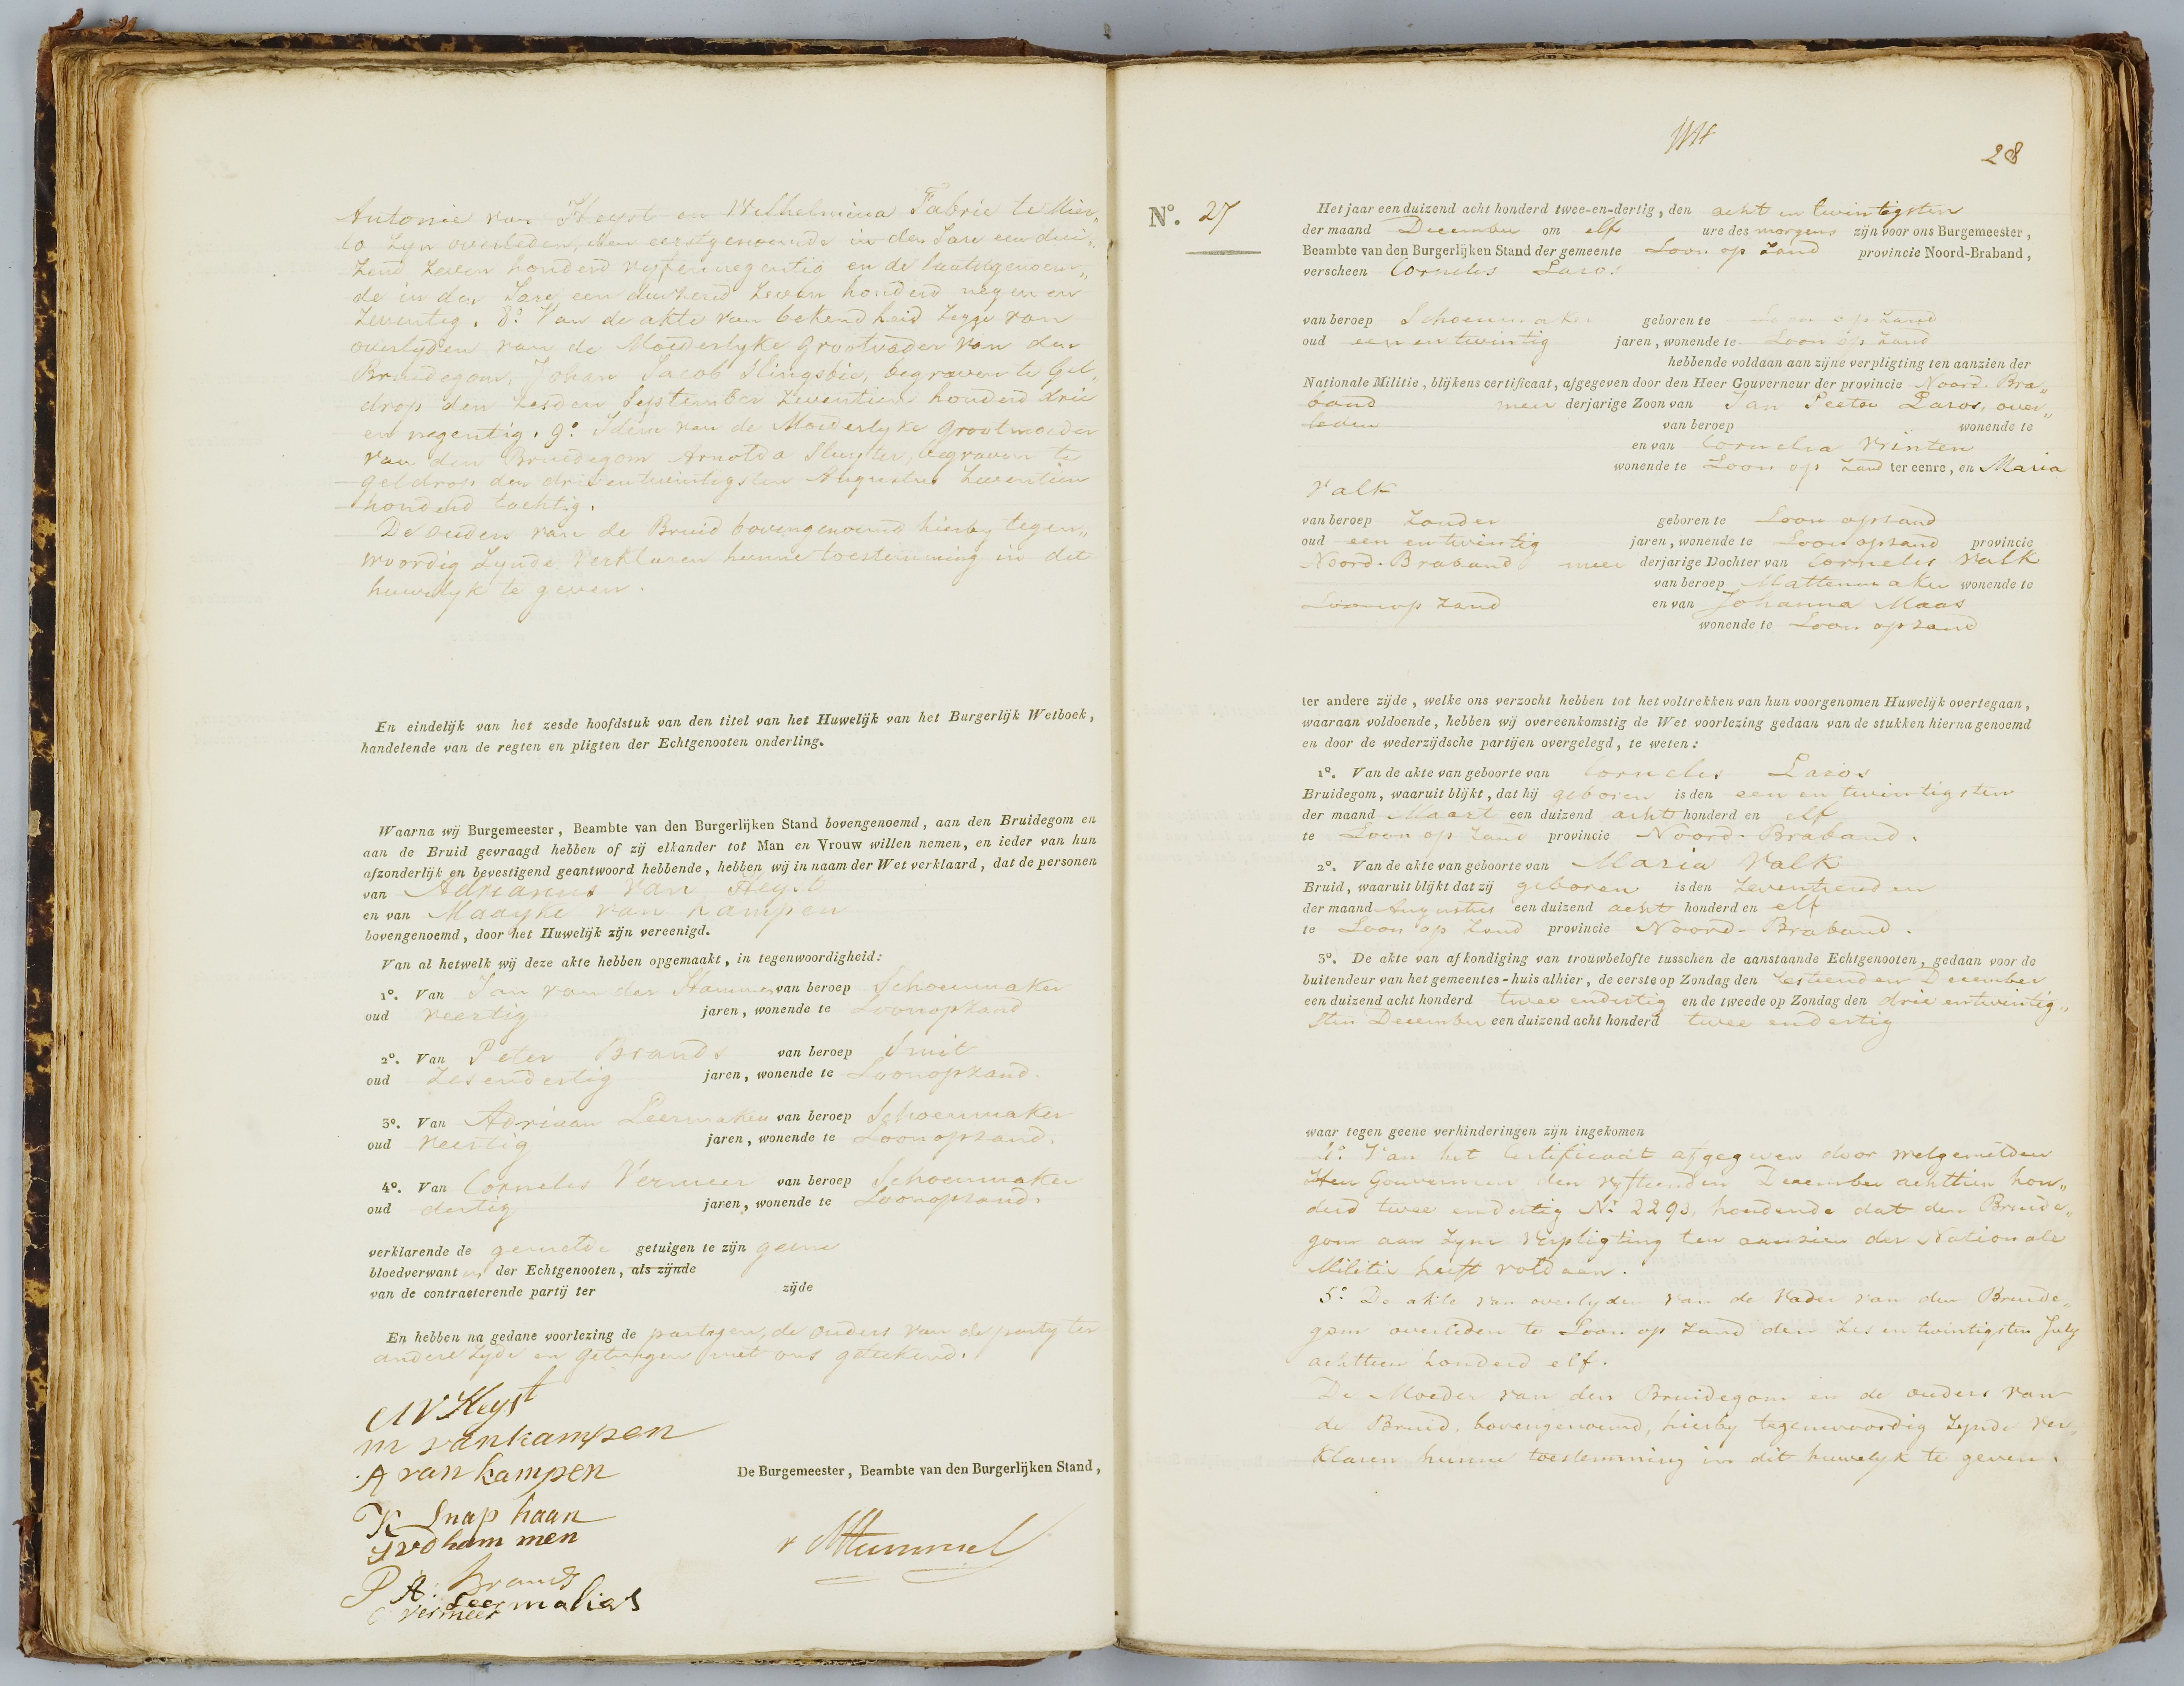 Antonie van Heyst en Wilhelmina Fabrie te Mier„
lo zyn overleden, den eerstgenoemde in den Jare een dui„
zend zeven honderd vyfennegentig en de laatstgenoem„
de in den Jare een duizend zeven honderd negen en
zeventig. 8º Van de akte van bekendheid wegens
overlyden van de Moederlyke Grootvader van den
Bruidegom, Johan Jacob Slingsbie, begraven te Gel„
drop den zesden September zeventien honderd drie
en negentig. 9º Idem van de Moederlyke grootmoeder
van den Bruidegom Arnolda Sluyter, begraven te
geldrop den drie entwintigsten Augustus zeventien
honderd tachtig.
De ouders van de Bruid bovengenoemd hierby tegen„
woordig zynde verklaren hunne toestemming in dit
huwelyk te geven.
En eindelijk van het zesde hoofdstuk van den titel van het Huwelijk van het Burgerlijk Wetboek,
handelende van de regten en pligten der Echtgenooten onderling.
Waarna wij Burgemeester, Beambte van den Burgerlijken Stand bovengenoemd, aan den Bruidegom en
aan de Bruid gevraagd hebben of zij elkander tot Man en Vrouw willen nemen, en ieder van hun
afzonderlijk en bevestigend geantwoord hebbende, hebben wij in naam der Wet verklaard, dat de personen
van Adrianus van Heyst
en van Maayke van Kampen
bovengenoemd, door het Huwelijk zijn vereenigd.
Van al hetwelk wij deze akte hebben opgemaakt, in tegenwoordigheid:
1º. Van Jan van der Hammen van beroep Schoenmaker
oud veertig jaren, wonende te Loonopzand
2º. Van Peter Brands van beroep Smit
oud zesendertig jaren, wonende te Loonopzand.
3º. Van Adriaan Leermakers van beroep Schoenmaker
oud veertig jaren, wonende te Loonopzand.
4º. Van Cornelis Vermeer van beroep Schoenmaker
oud dertig jaren, wonende te Loonopzand.
verklarende de gemelde getuigen te zijn geene
bloedverwanten der Echtgenooten, als zijnde
van de contracterende partij ter zijde
En hebben na gedane voorlezing de partyen, de ouders van de party ter
andere zyde en getuigen met ons geteekend.
A V Heyst
m vankampen
A van kampen
K Snap haan
J vd ham men
P Brands
A: Leermakers
C Vermeer
De Burgemeester, Beambte van den Burgerlijken Stand,
28
Nº. 27
Het jaar een duizend acht honderd twee-en-dertig, den acht en twintigsten
der maand December om elf ure des morgens zijn voor ons Burgemeester,
Beambte van den Burgerlijken Stand der gemeente Loon op Zand provincie Noord-Braband,
verscheen Cornelis Lazos
van beroep Schoenmaker geboren te Loon op Zand
oud een en twintig jaren, wonende te Loon op Zand
hebbende voldaan aan zijne verpligting ten aanzien der
Nationale Militie, blijkens certificaat, afgegeven door den Heer Gouverneur der provincie Noord-Bra„
band meer derjarige Zoon van Jan Peeter Lazos, over„
leden van beroep wonende te
en van Cornelia Vrinten
wonende te Loon op Zand ter eenre, en Maria
Valk
van beroep zonder geboren te Loon opzand
oud een en twintig jaren, wonende te Loon opzand provincie
Noord-Braband meer derjarige Dochter van Cornelis Valk
van beroep Mattenmaker wonende te
Loonop zand en van Johanna Maas
wonende te Loon opzand
ter andere zijde, welke ons verzocht hebben tot het voltrekken van hun voorgenomen Huwelijk overtegaan,
waaraan voldoende, hebben wij overeenkomstig de Wet voorlezing gedaan van de stukken hierna genoemd
en door de wederzijdsche partijen overgelegd, te weten:
1º. Van de akte van geboorte van Cornelis Lazos
Bruidegom, waaruit blijkt, dat hij geboren is den een en twintigsten
der maand Maart een duizend acht honderd en elf
te Loon op Zand provincie Noord-Braband.
2º. Van de akte van geboorte van Maria Valk
Bruid, waaruit blijkt dat zij geboren is den zeventienden
der maand Augustus een duizend acht honderd en elf
te Loon op Zand provincie Noord-Braband.
3º. De akte van afkondiging van trouwbelofte tusschen de aanstaande Echtgenooten, gedaan voor de
buitendeur van het gemeentes-huis alhier, de eerste op Zondag den zestienden December
een duizend acht honderd twee endertig en de tweede op Zondag den drie entwintig„
sten December een duizend acht honderd twee endertig
waar tegen geene verhinderingen zijn ingekomen
4º. Van het Certificaat afgegeven door welgemelden
Heer Gouverneur den vyftienden December achttien hon„
derd twee endertig Nº 2293, houdende dat den Bruide„
gom aan zyne verpligting ten aanzien der Nationale
Militie heeft voldaan.
5º De akte van overlyden van de vader van den Bruide„
gom overleden te Loon op Zand den zes en twintigsten July
achttien honderd elf.
De Moeder van den Bruidegom en de ouders van
de Bruid, bovengenoemd, hierby tegenwoordig zynde ver„
klaren hunne toestemming in dit huwelyk te geven.